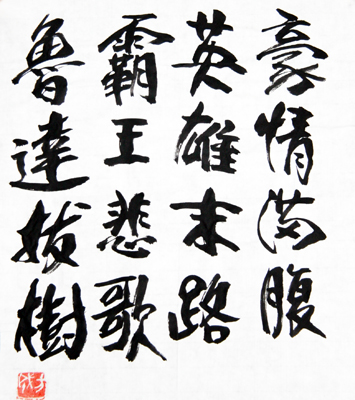 豪情满腹
英雄末路
霸王悲歌
魯達拔樹